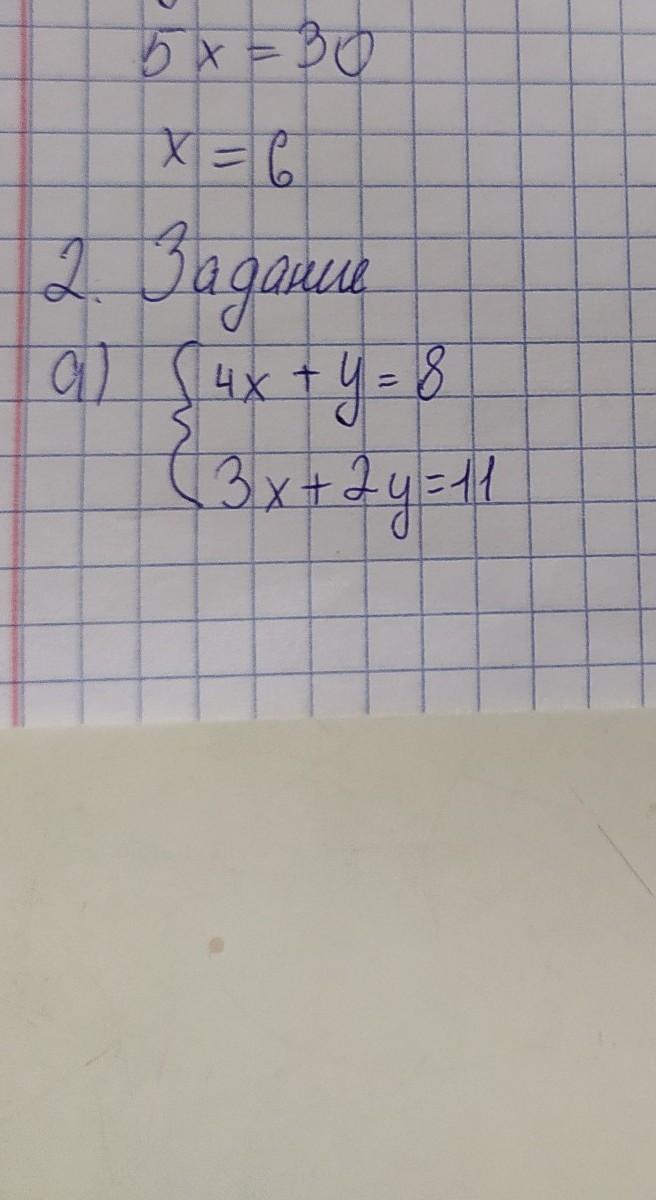 5x = 30
x = 6
2. Задание
а) { 4x + y = 8
3x + 2y = 11